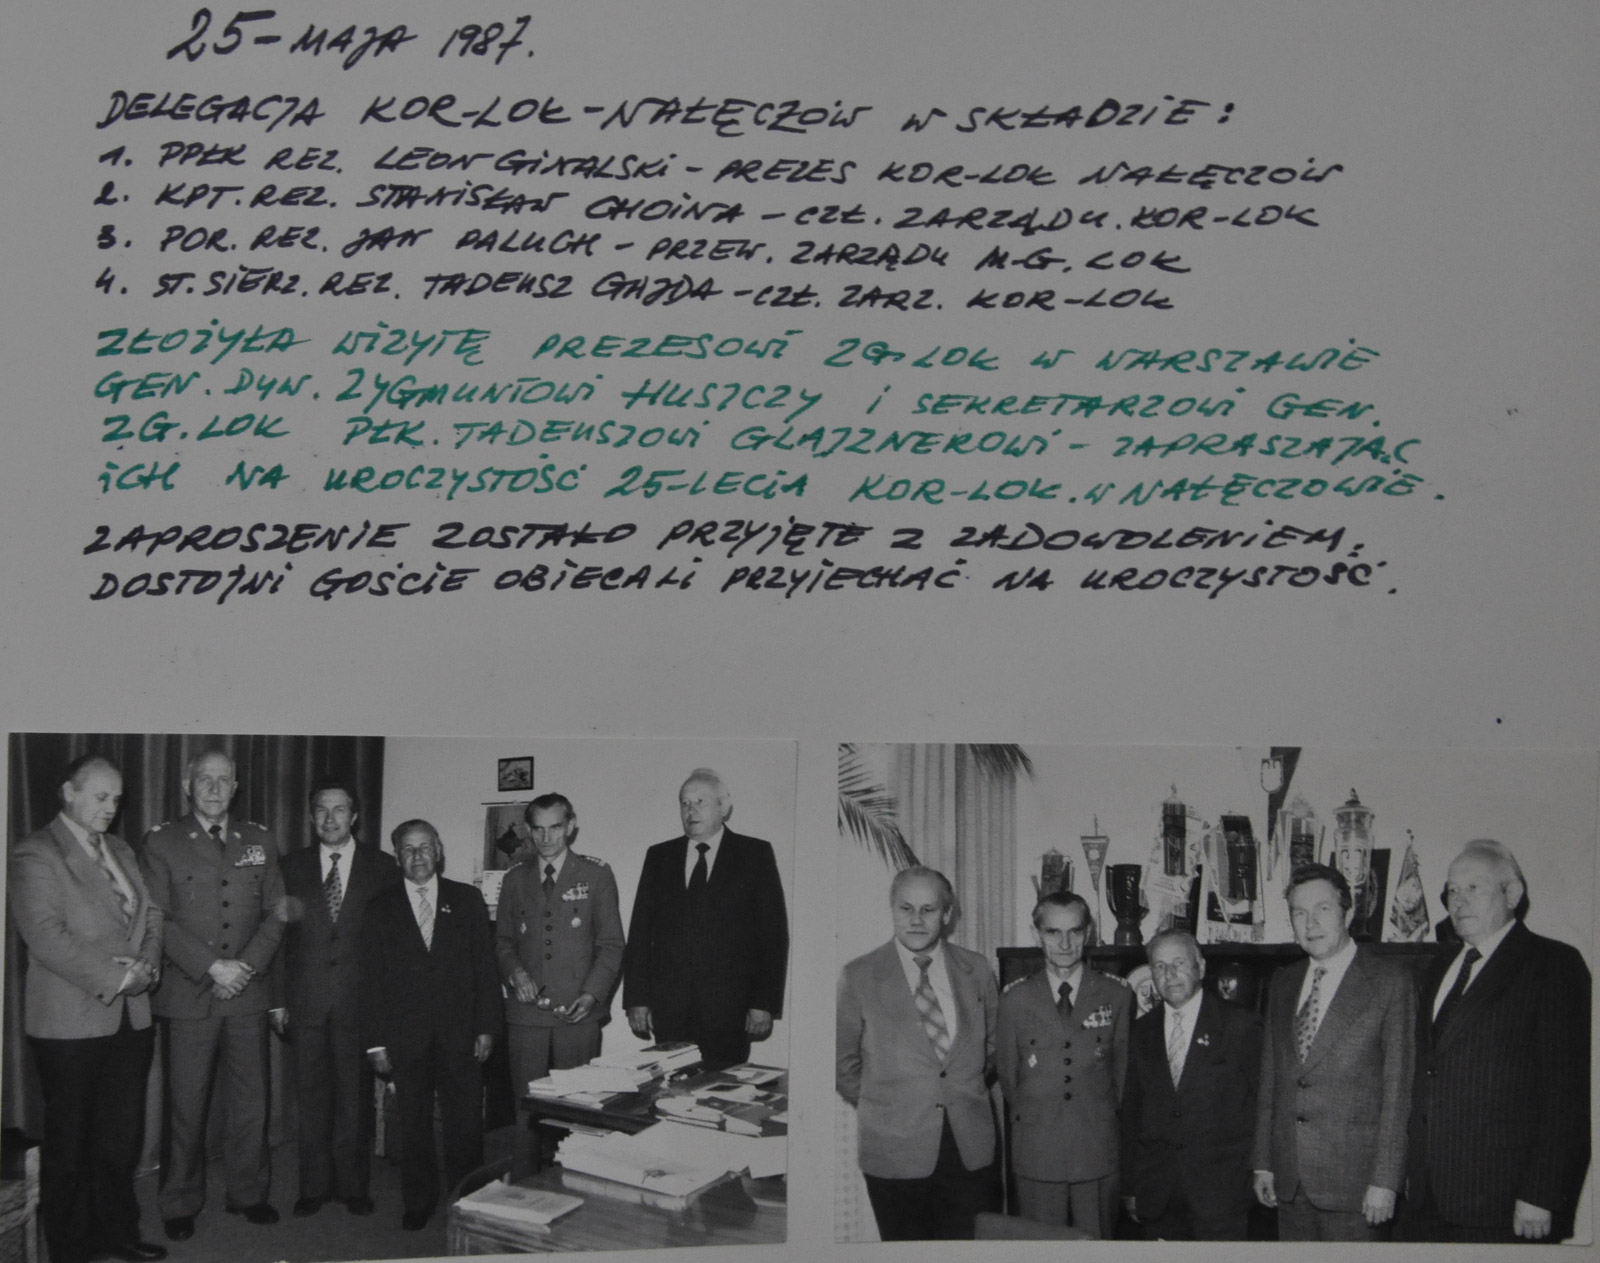 25-MAJA 1987.
DELEGACJA KOR-LOK-NAŁĘCZÓW W SKŁADZIE:
1. PPŁK REZ. LEON GINALSKI - PREZES KOR-LOK NAŁĘCZÓW
2. KPT. REZ. STANISŁAW CHOINA - CZŁ. ZARZĄDU. KOR-LOK
3. POR. REZ. JAN PALUCH - PRZEW. ZARZĄDU M-G. LOK
4. ST. SIERZ. REZ. TADEUSZ GAJDA - CZŁ. ZARZ. KOR-LOK
ZŁOŻYŁA WIZYTĘ PREZESOWI ZG. LOK W WARSZAWIE
GEN. DYW. ZYGMUNTOWI HUSZCZY I SEKRETARZOWI GEN.
ZG. LOK PŁK. TADEUSZOWI GLAJZNEROWI - ZAPRASZAJĄC
ICH NA UROCZYSTOŚĆ 25-LECIA KOR-LOK. W NAŁĘCZOWIE.
ZAPROSZENIE ZOSTAŁO PRZYJĘTE Z ZADOWOLENIEM.
DOSTOJNI GOŚCIE OBIECALI PRZYJECHAĆ NA UROCZYSTOŚĆ.